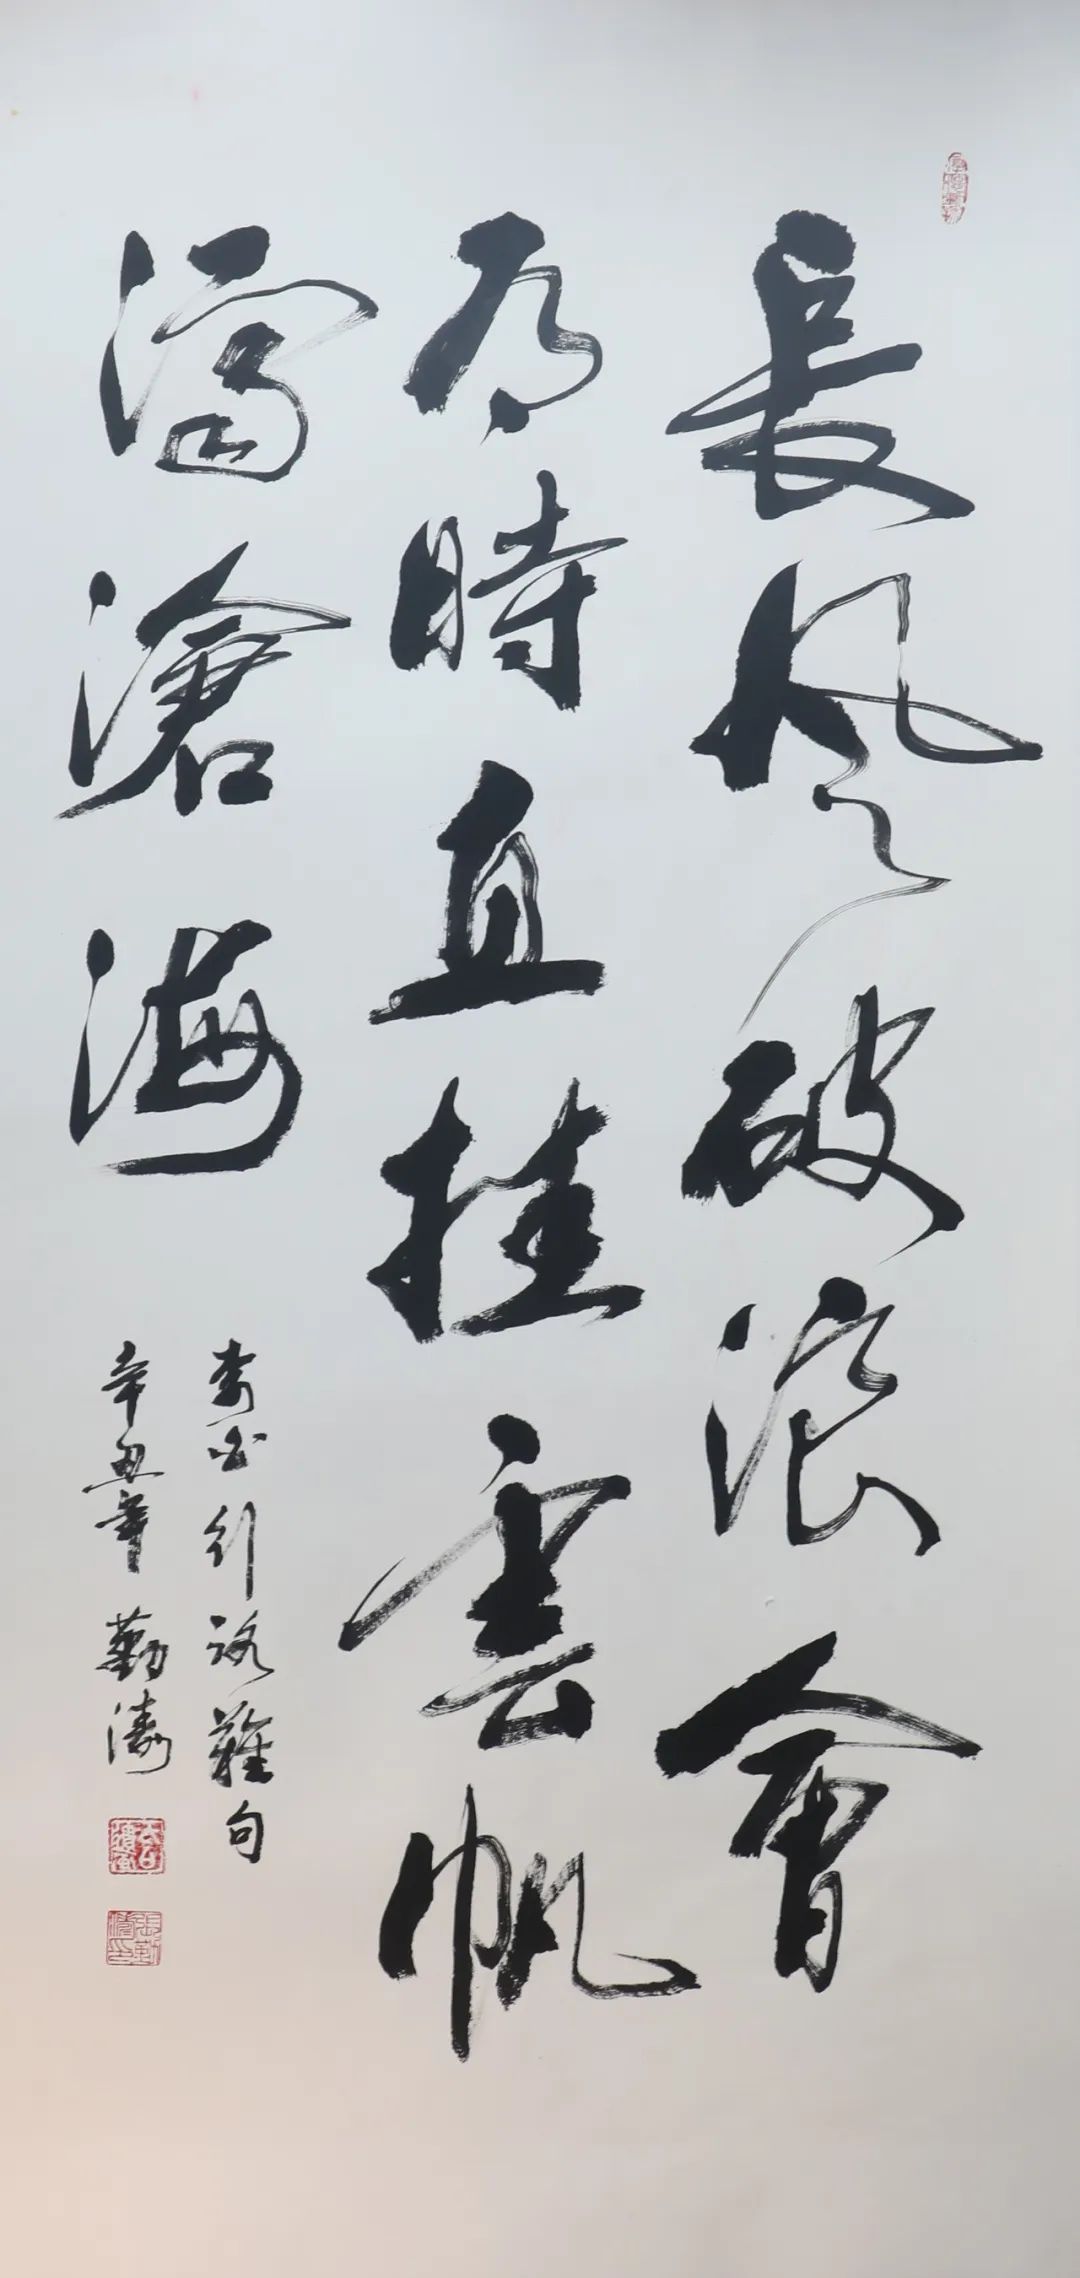 長风破浪會
有時直挂雲帆
濟滄海
李白行路難句
辛丑年 勤濤